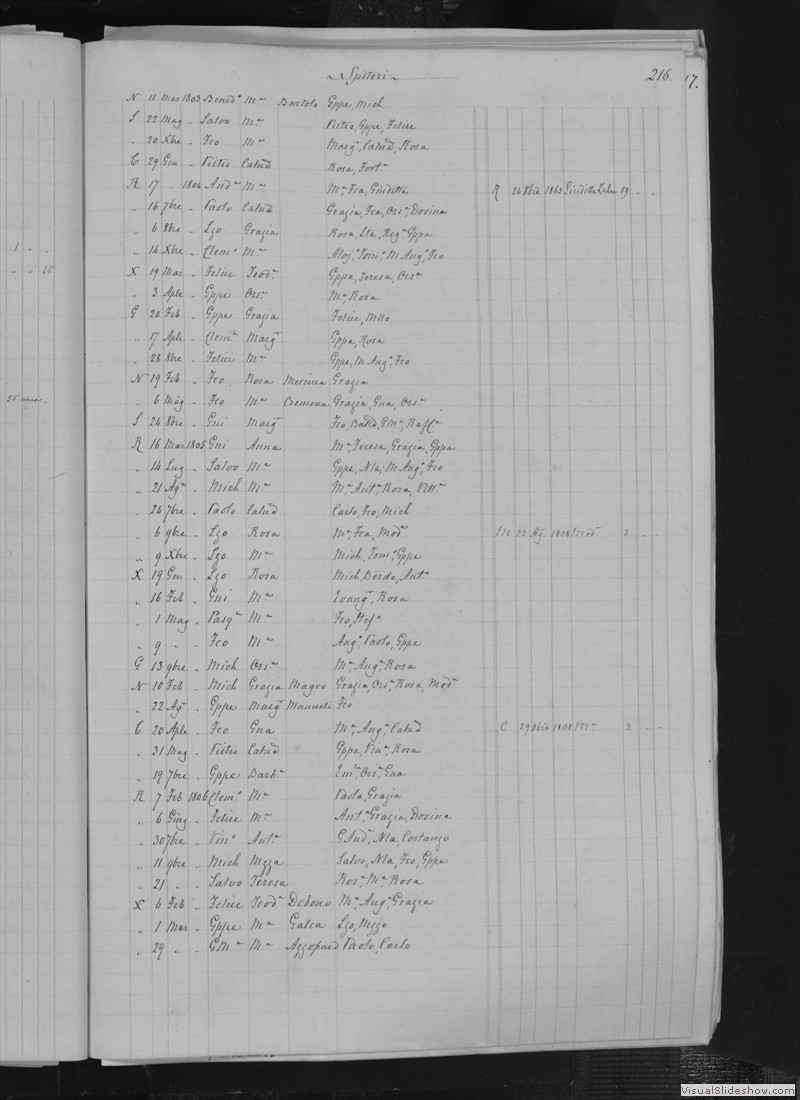 Spiteri
216.
17.
N 11 Mar 1803 Bened.o M.a Bartolo Gppe, Mich
S 22 Mag " Salvo M.a Pietro, Gppe, Felice
" 20 Xbre " Fco M.a Marg.a, Catne, Rosa
C 29 Gen " Pietro Catne Rosa, Fort.a
R 17 " 1804 And.a M.a M.a Fca, Giuditta R 24 1863 Giuditta 59 " "
" 16 7bre " Paolo Catne Grazia, Fca, Ors.a, Dorina
" 6 8bre " Lzo Grazia Rosa, Lta, Reg.a Gppa
" 14 Xbre " Clem.e M.a Aloj.o Tom.o M Ang.o, Fco
X 19 Mar " Felice Teod.a Gppa, Teresa, Ors.a
" 3 Aple " Gppe Ors.a M.a, Rosa
G 20 Feb " Gppe Grazia Felice, Mllo.
" 17 Aple " Clem.e Marg.a Gppa, Rosa
" 28 8bre " Felice M.a Gppe, M Ang.o, Fco
N 19 Feb " Fco Rosa Mercieca Grazia
" 6 Mag " Fco M.a Cremona Grazia, Gna, Ors.a
S 24 8bre " Gni Marg.a Fco, G M.a, Raff.e
R 16 Mar 1805 Gni Anna M.a, Teresa, Grazia, Gppa
" 14 Lug " Salvo M.a Gppe, Nla, M Ang.o, Fco
" 21 Ag.o " Mich M.a M.a, Ant.a, Rosa, Vitt.a
" 24 7bre " Paolo Catne Carlo, Fco, Mich
" 6 9bre " Lzo Rosa M.a, Fca, Mod.a M 22 Ag. 1808 Mod.a 3 " "
" 9 Xbre " Lzo M.a Mich, Tom.o, Gppe
X 19 Gen " Lzo Rosa Mich, Berdo, Ant.o
" 16 Feb " Gni M.a Evang.a, Rosa
" 1 Mag " Pasq.e M.a Fco, Stef.o
" 9 " " Fco M.a Ang.o, Paolo, Gppe
G 13 9bre " Mich Ors.a M.a, Ang.a, Rosa
N 10 Feb " Mich Grazia Magro Grazia, Ors.a, Rosa, Mod.a
" 22 Ag.o " Gppe Marg.a Manuele Fco
C 20 Aple " Fco Gna M.a, Ang.a, Catne C 29 1808 M.a 3 " "
" 31 Mag " Pietro Catne Gppa, Vin.a, Rosa
" 19 7bre " Gppe Barb.a Em.a, Ors.a, Gna
R 7 Feb 1806 Clem.e M.a Paola, Grazia
" 6 Giug " Felice M.a Ant.a, Grazia, Dorina
" 30 7bre " Vin.o Ant.a G And.a, Nla, Costanzo
" 11 9bre " Mich Mzza Salvo, Nla, Fco, Gppe
" 21 " " Salvo Teresa Ros.a, M.a, Rosa
X 6 Feb " Felice Teod.a Debono M.a, Ang.a, Grazia
" 1 Mar " Gppe M.a Galea Lzo, Mzzo
" 29 " " G M.a M.a Azzopard Paolo, Carlo
VisualSlideshow.com